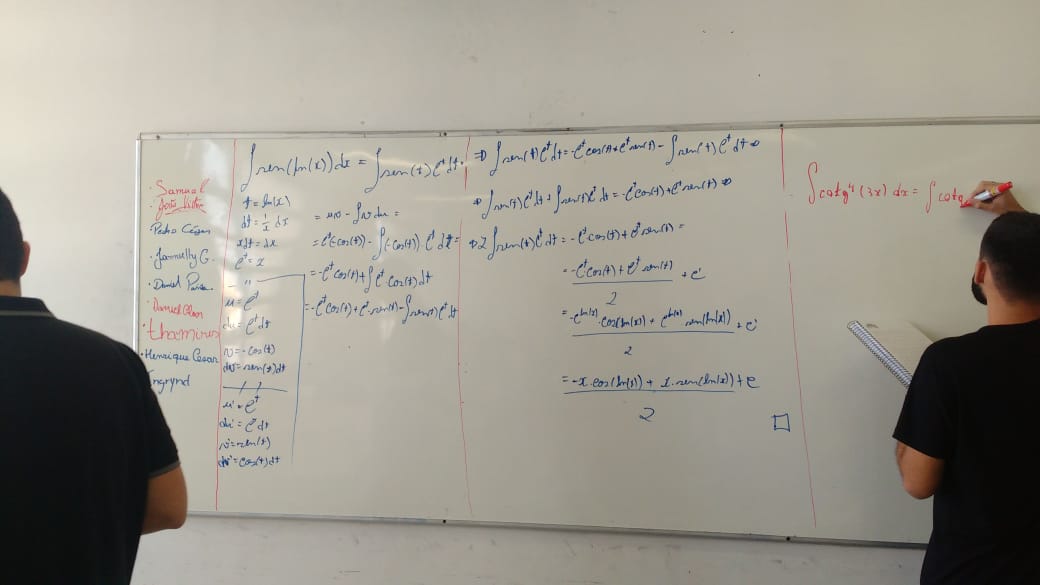 · Samuel
· João Victor
Pedro César
· Jamuelly G.
· Daniel
· Daniel
· Thamires
· Henrique Cesar
Ingrynd
∫sen(ln(x))dx = ∫sen(t)e^t dt.
t = ln(x)
dt = 1/x dx
xdt = dx
e^t = x
u = e^t
du = e^t dt
v = -cos(t)
dv = sen(t)dt
u' = e^t
du' = e^t dt
v' = sen(t)
dv' = cos(t)dt
= uv - ∫v du =
= e^t(-cos(t)) - ∫(-cos(t)) e^t dt =
= -e^t cos(t) + ∫e^t·cos(t)dt
= -e^t cos(t) + e^t·sen(t) - ∫sen(t)e^t dt
⇒ ∫sen(t)e^t dt = -e^t cos(t) + e^t sen(t) - ∫sen(t)e^t dt ⇒
⇒ ∫sen(t)e^t dt + ∫sen(t)e^t dt = -e^t cos(t) + e^t sen(t) ⇒
⇒ 2∫sen(t)e^t dt = -e^t cos(t) + e^t sen(t) =
= -e^t cos(t) + e^t sen(t) + c'
2
= -e^ln(x)·cos(ln(x)) + e^ln(x) sen(ln(x)) + c'
2
= -x·cos(ln(x)) + x·sen(ln(x)) + c
2
□
∫cotg⁴(3x) dx = ∫cotg